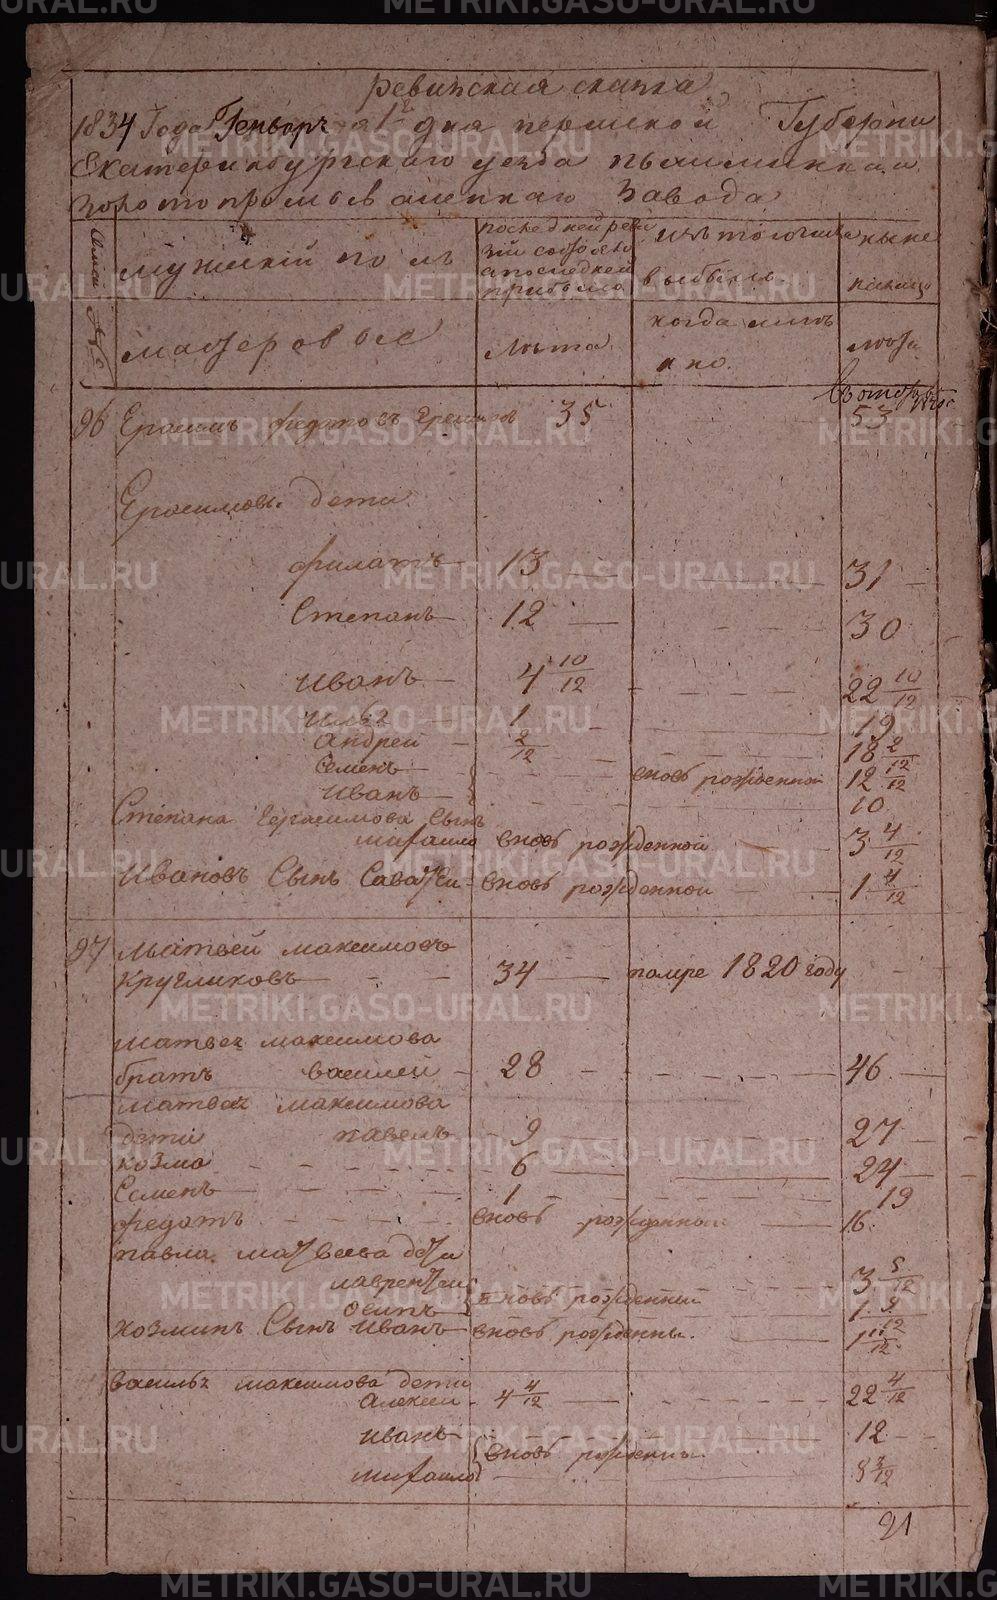 ревижская скаска
1834 Года Генворя 12 дня пермской Губерни
Екатеринбургскаго уезда пышминскаго
золотопромысваленнаго Завода
мужский полъ
последней реви
зии состояло
а последней
прибыло
изъ того числа
выбыло
ныне
налицо
мастеровые
Лѣта
когда имянъ
но.
люди
96 Ерасимъ федотовъ 35 53
Ерасимовы дети
филатъ 13 31
Степанъ 12 30
Иванъ 4 10/12 22 10/12
Илья 1 19
Андрей 2/12 18 2/12
Семенъ вновь рожденной 12 /12
Иванъ 10
Степана Герасимова Сынъ
михаило вновь рожденной 3 4/12
Ивановъ Сынъ Саватеи вновь рожденной 1 4/12
97 Матвей максимовъ
Кругликовъ 34 помре 1820 году
матвея максимова
братъ василей 28 46
матвея максимова
дети павелъ 9 27
козма 6 24
Семенъ 1 19
федотъ вновь рожденной 16
павла матвеева дети
лаврентеи вновь рожденнии 3 5/12
Осипъ 1 9/12
козминъ Сынъ Иванъ вновь рожденны 1 11/12
василья максимова дети
Алексеи 4 4/12 22 4/12
иванъ вновь рожденны 12
михаило 8 3/12
21
METRIKI.GASO-URAL.RU